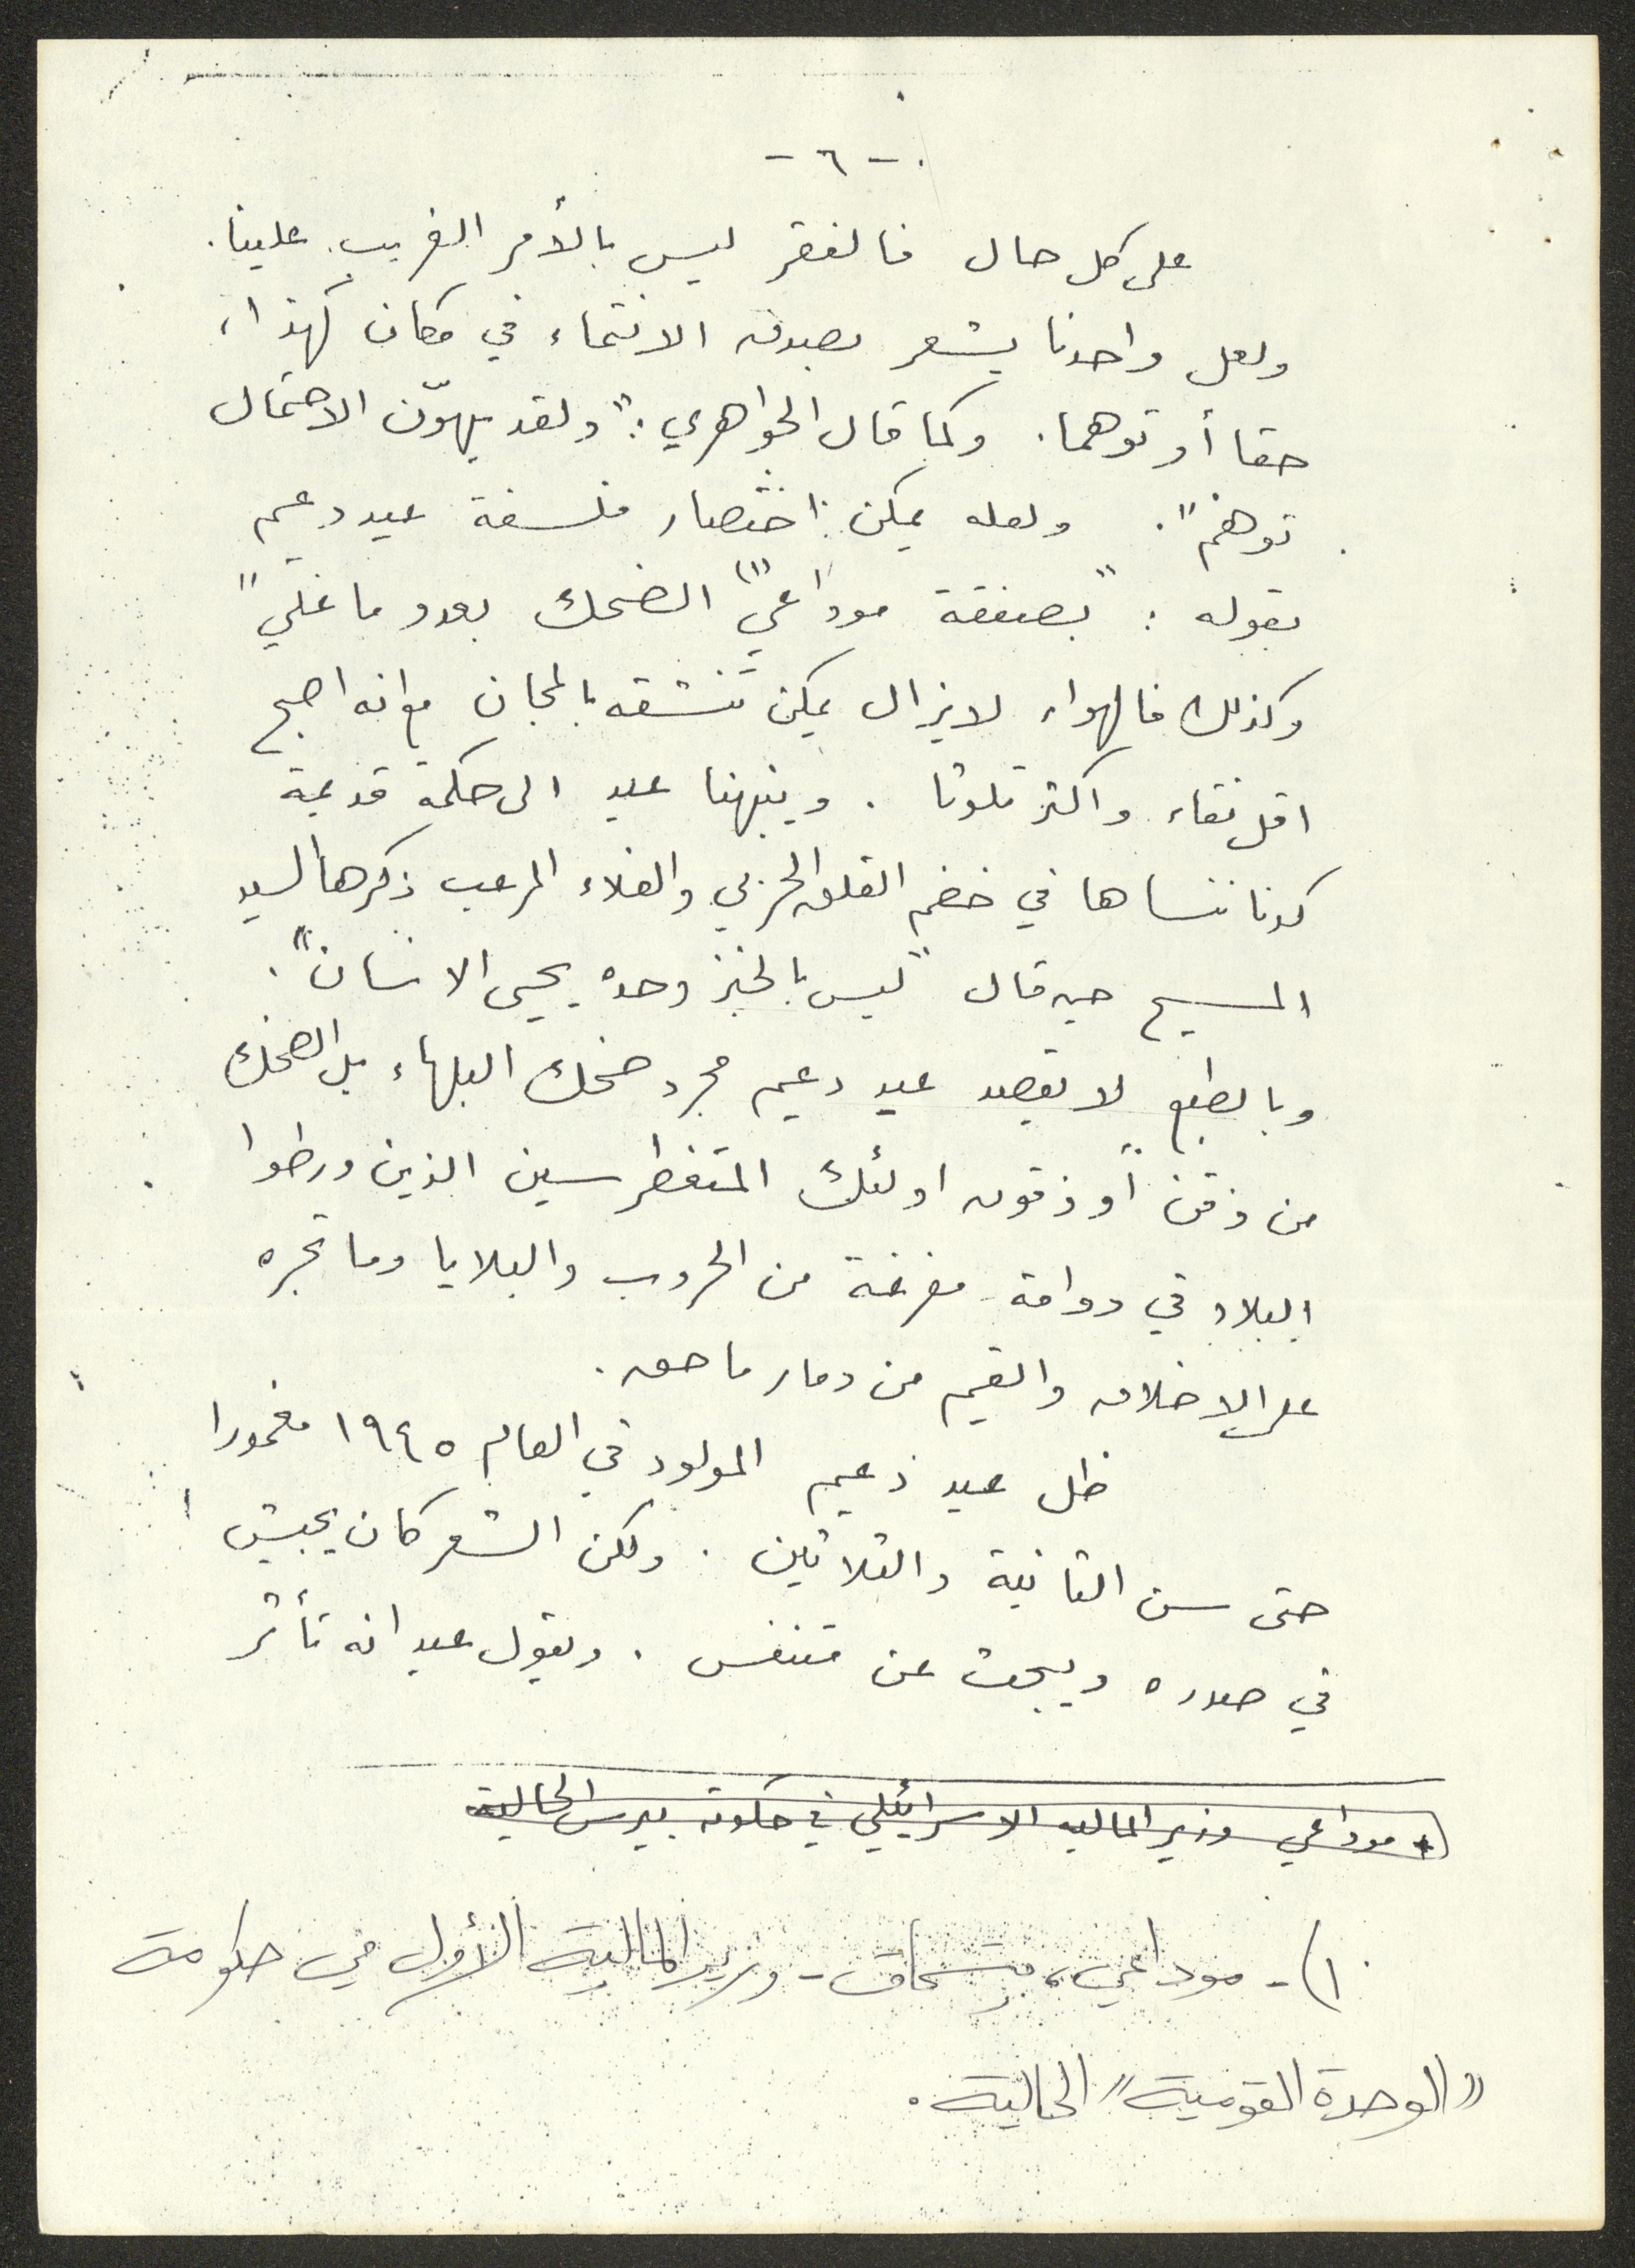 - ٦ -
على كل حال فالفقر ليس بالأمر الغريب علينا.
ولعل واحدنا يشعر بصدق الانتماء في مكان كهذا،
حقا أو توهما. وكما قال الجواهري: "ولقد يهوّن الاحتمال
توهّم". ولعله يمكن اختصار فلسفة عيد دعيم
بقوله: "بصفقة موداعي(١) الضحك بعدو ما غلي"
وكذلك فالهواء لا يزال يمكن تنشقه بالمجان مع انه اصبح
اقل نقاء واكثر تلوثا. وينبهنا عيد الى حكمة قديمة
كدنا ننساها في خضم القلق الحزبي والغلاء المرعب ذكرها السيد
المسيح حين قال "ليس بالخبز وحده يحيى الانسان".
وبالطبع لا يقصد عيد دعيم مجرد ضحك البلهاء بل الضحك
من ذقن أو ذقون اولئك المتغطرسين الذين ورطوا
البلاد في دوامة مفرغة من الحروب والبلايا وما تجره
على الاخلاق والقيم من دمار ماحق.
ظل عيد دعيم المولود في العام ١٩٤٥ مغمورا
حتى سن الثانية والثلاثين. ولكن الشعر كان يجيش
في صدره ويبحث عن متنفس. ويقول عيد انه تأثر
* موداعي وزير المالية الاسرائيلي في حكومة بيرس الحالية
١)- موداعي، يتسحاق - وزير المالية الأول في حكومة
"الوحدة القومية" الحالية.